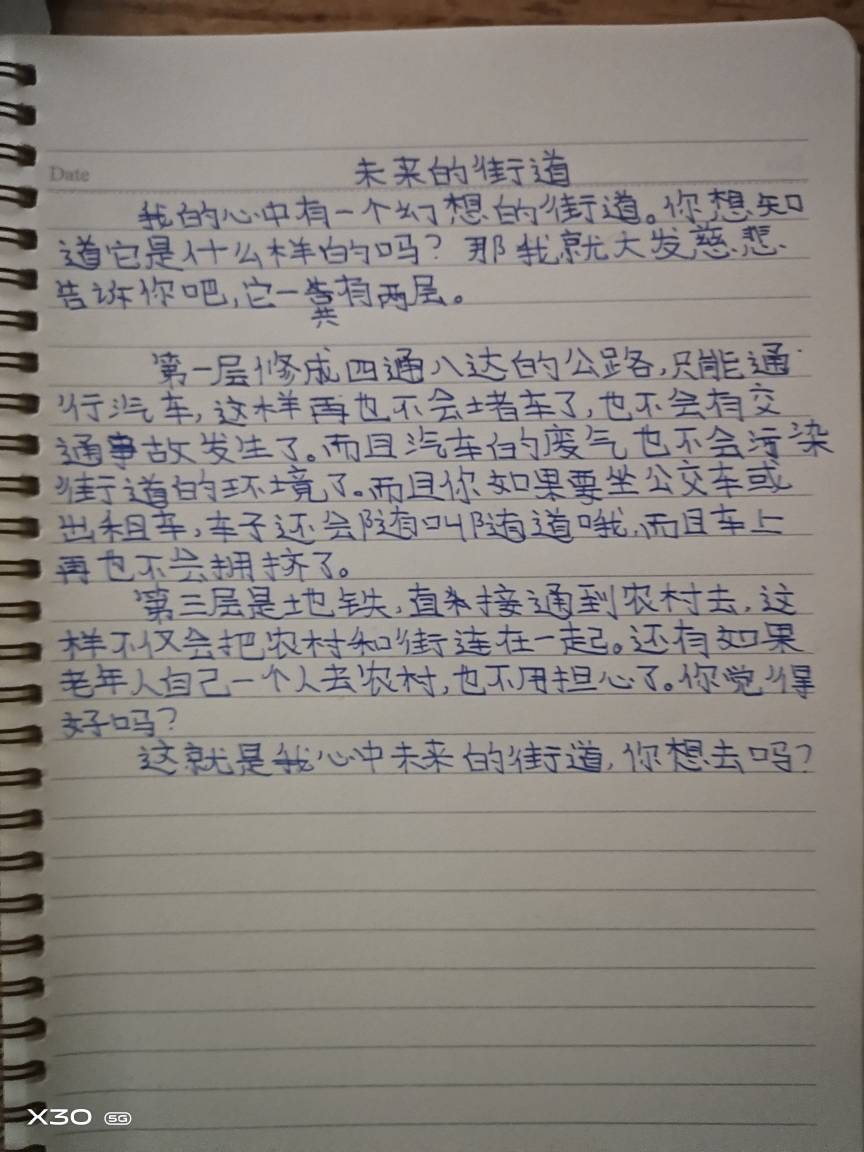 Date
未来的街道
我的心中有一个幻想的街道。你想知
道它是什么样的吗？那我就大发慈悲
告诉你吧，它一共有两层。
第一层修成四通八达的公路，只能通
行汽车，这样再也不会堵车了，也不会有交
通事故发生了。而且汽车的废气也不会污染
街道的环境了。而且你如果要坐公交车或
出租车，车子还会随叫随道哦，而且车上
再也不会拥挤了。
第三层是地铁，直接通到农村去，这
样不仅会把农村和街连在一起。还有如果
老年人自己一个人去农村，也不用担心了。你觉得
好吗？
这就是我心中未来的街道，你想去吗？
X30 5G